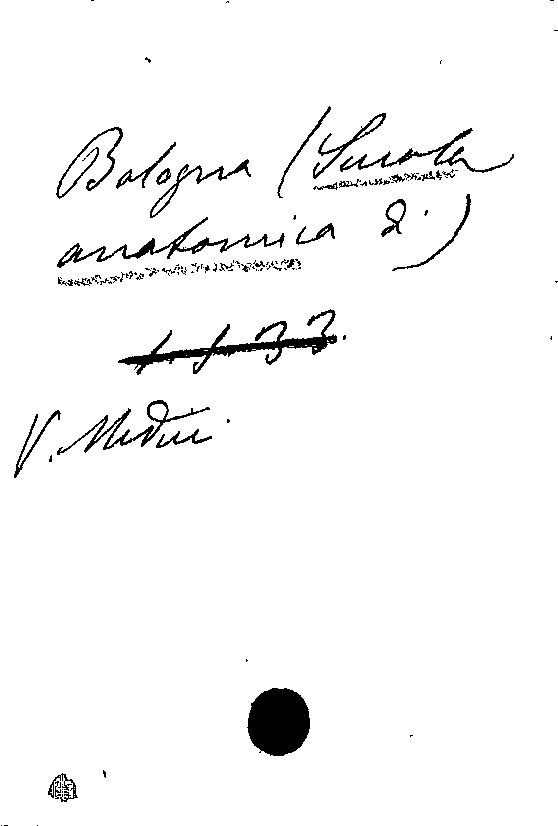 Bologna (Scuola
anatomica d.)
1. 1. 33.
V. Medici.